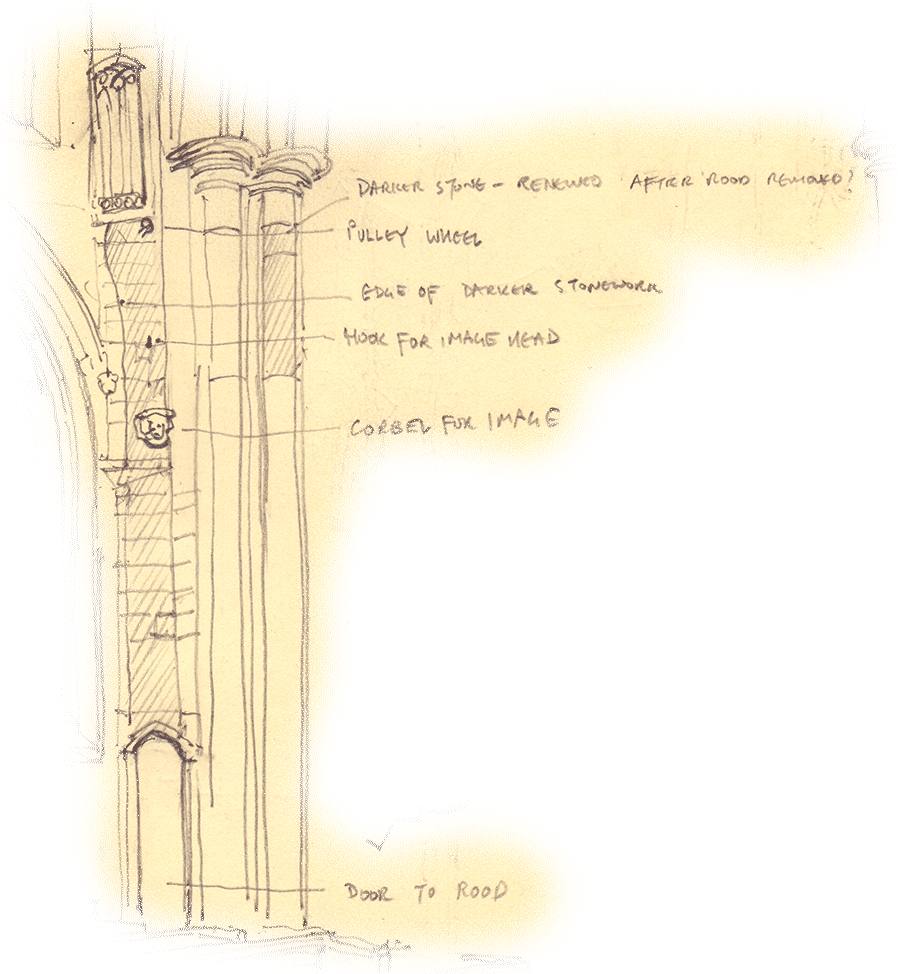 DARKER STONE – RENEWED AFTER ROOD REMOVED?
PULLEY WHEEL
EDGE OF DARKER STONEWORK
HOOK FOR IMAGE HEAD
CORBEL FOR IMAGE
DOOR TO ROOD